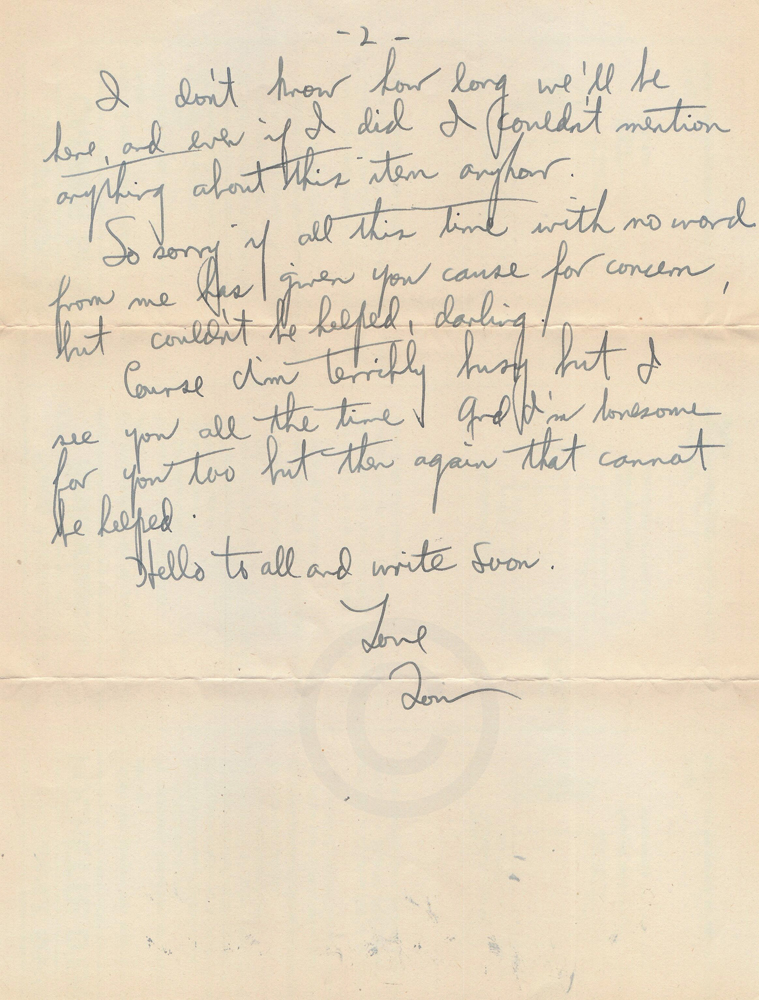 - 2 -
I don't know how long we'll be
here, and even if I did I couldn't mention
anything about this item anyhow.
So sorry if all this time with no word
from me has given you cause for concern,
but couldn't be helped, darling.
Course I'm terribly busy but I
see you all the time. And I'm lonesome
for you too but then again that cannot
be helped.
Hello to all and write soon.
Love
©